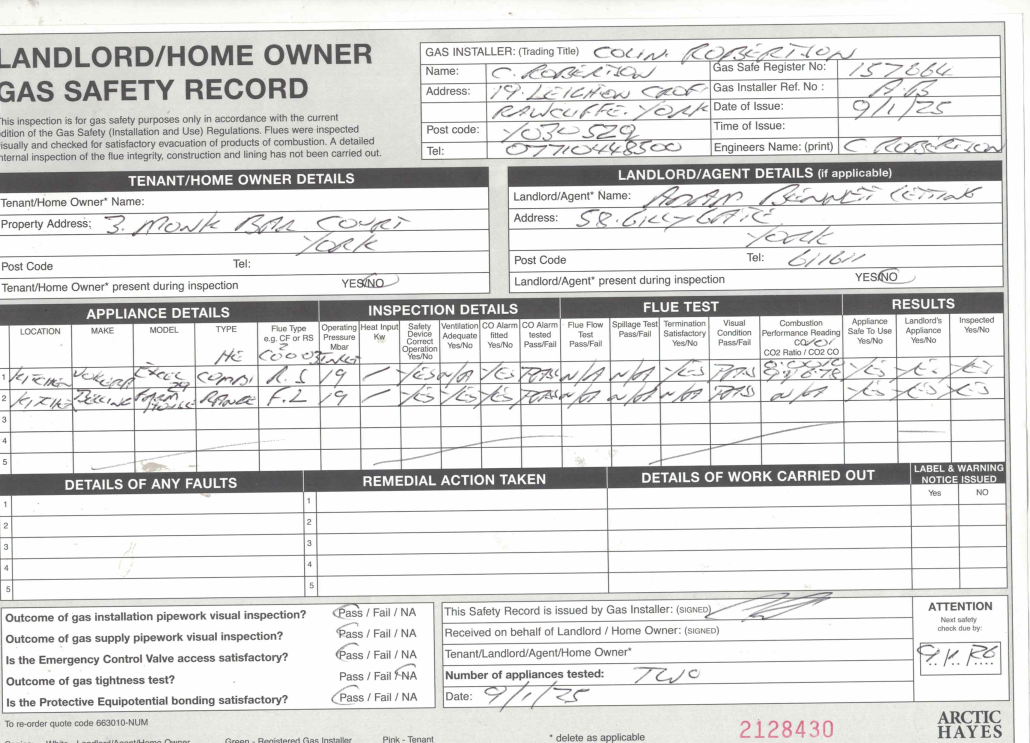 LANDLORD/HOME OWNER
GAS SAFETY RECORD
This inspection is for gas safety purposes only in accordance with the current
edition of the Gas Safety (Installation and Use) Regulations. Flues were inspected
visually and checked for satisfactory evacuation of products of combustion. A detailed
internal inspection of the flue integrity, construction and lining has not been carried out.
GAS INSTALLER: (Trading Title) COLIN ROBERTSON
Name: C. ROBERTSON Gas Safe Register No: 157864
Address: 19. LEIGHTON CROFT Gas Installer Ref. No : A.B
RAWCLIFFE. YORK Date of Issue: 9/1/25
Post code: YO30 5ZQ Time of Issue:
Tel: 07710448500 Engineers Name: (print) C ROBERTSON
TENANT/HOME OWNER DETAILS
Tenant/Home Owner* Name:
Property Address: 3. MONK BAR COURT
YORK
Post Code Tel:
Tenant/Home Owner* present during inspection YES/NO
LANDLORD/AGENT DETAILS (if applicable)
Landlord/Agent* Name: ADAM BENNETT LETTING
Address: 58. GILLYGATE
YORK
Post Code Tel: 611611
Landlord/Agent* present during inspection YES/NO
APPLIANCE DETAILS INSPECTION DETAILS FLUE TEST RESULTS
LOCATION MAKE MODEL TYPE Flue Type e.g. CF or RS Operating Pressure Mbar Heat Input Kw Safety Device Correct Operation Yes/No Ventilation Adequate Yes/No CO Alarm fitted Yes/No CO Alarm tested Pass/Fail Flue Flow Test Pass/Fail Spillage Test Pass/Fail Termination Satisfactory Yes/No Visual Condition Pass/Fail Combustion Performance Reading CO2 Ratio / CO2 CO Appliance Safe To Use Yes/No Landlord's Appliance Yes/No Inspected Yes/No
HE
1 KITCHEN VOKERA EXCEL 29 COMBI R.S 19 / YES N/A YES PASS N/A N/A YES PASS YES YES YES
2 KITCHEN BELLING FARM HOUSE RANGE F.L 19 / YES YES YES PASS N/A N/A N/A PASS N/A YES YES YES
3
4
5
DETAILS OF ANY FAULTS REMEDIAL ACTION TAKEN DETAILS OF WORK CARRIED OUT LABEL & WARNING NOTICE ISSUED
Yes NO
1 1
2 2
3 3
4 4
5 5
Outcome of gas installation pipework visual inspection? Pass / Fail / NA
Outcome of gas supply pipework visual inspection? Pass / Fail / NA
Is the Emergency Control Valve access satisfactory? Pass / Fail / NA
Outcome of gas tightness test? Pass / Fail / NA
Is the Protective Equipotential bonding satisfactory? Pass / Fail / NA
This Safety Record is issued by Gas Installer: (SIGNED)
Received on behalf of Landlord / Home Owner: (SIGNED)
Tenant/Landlord/Agent/Home Owner*
Number of appliances tested: TWO
Date: 9/1/25
ATTENTION
Next safety
check due by:
9.1.26
To re-order quote code 663010-NUM
White - Landlord/Agent/Home Owner Green - Registered Gas Installer Pink - Tenant
* delete as applicable
2128430
ARCTIC
HAYES